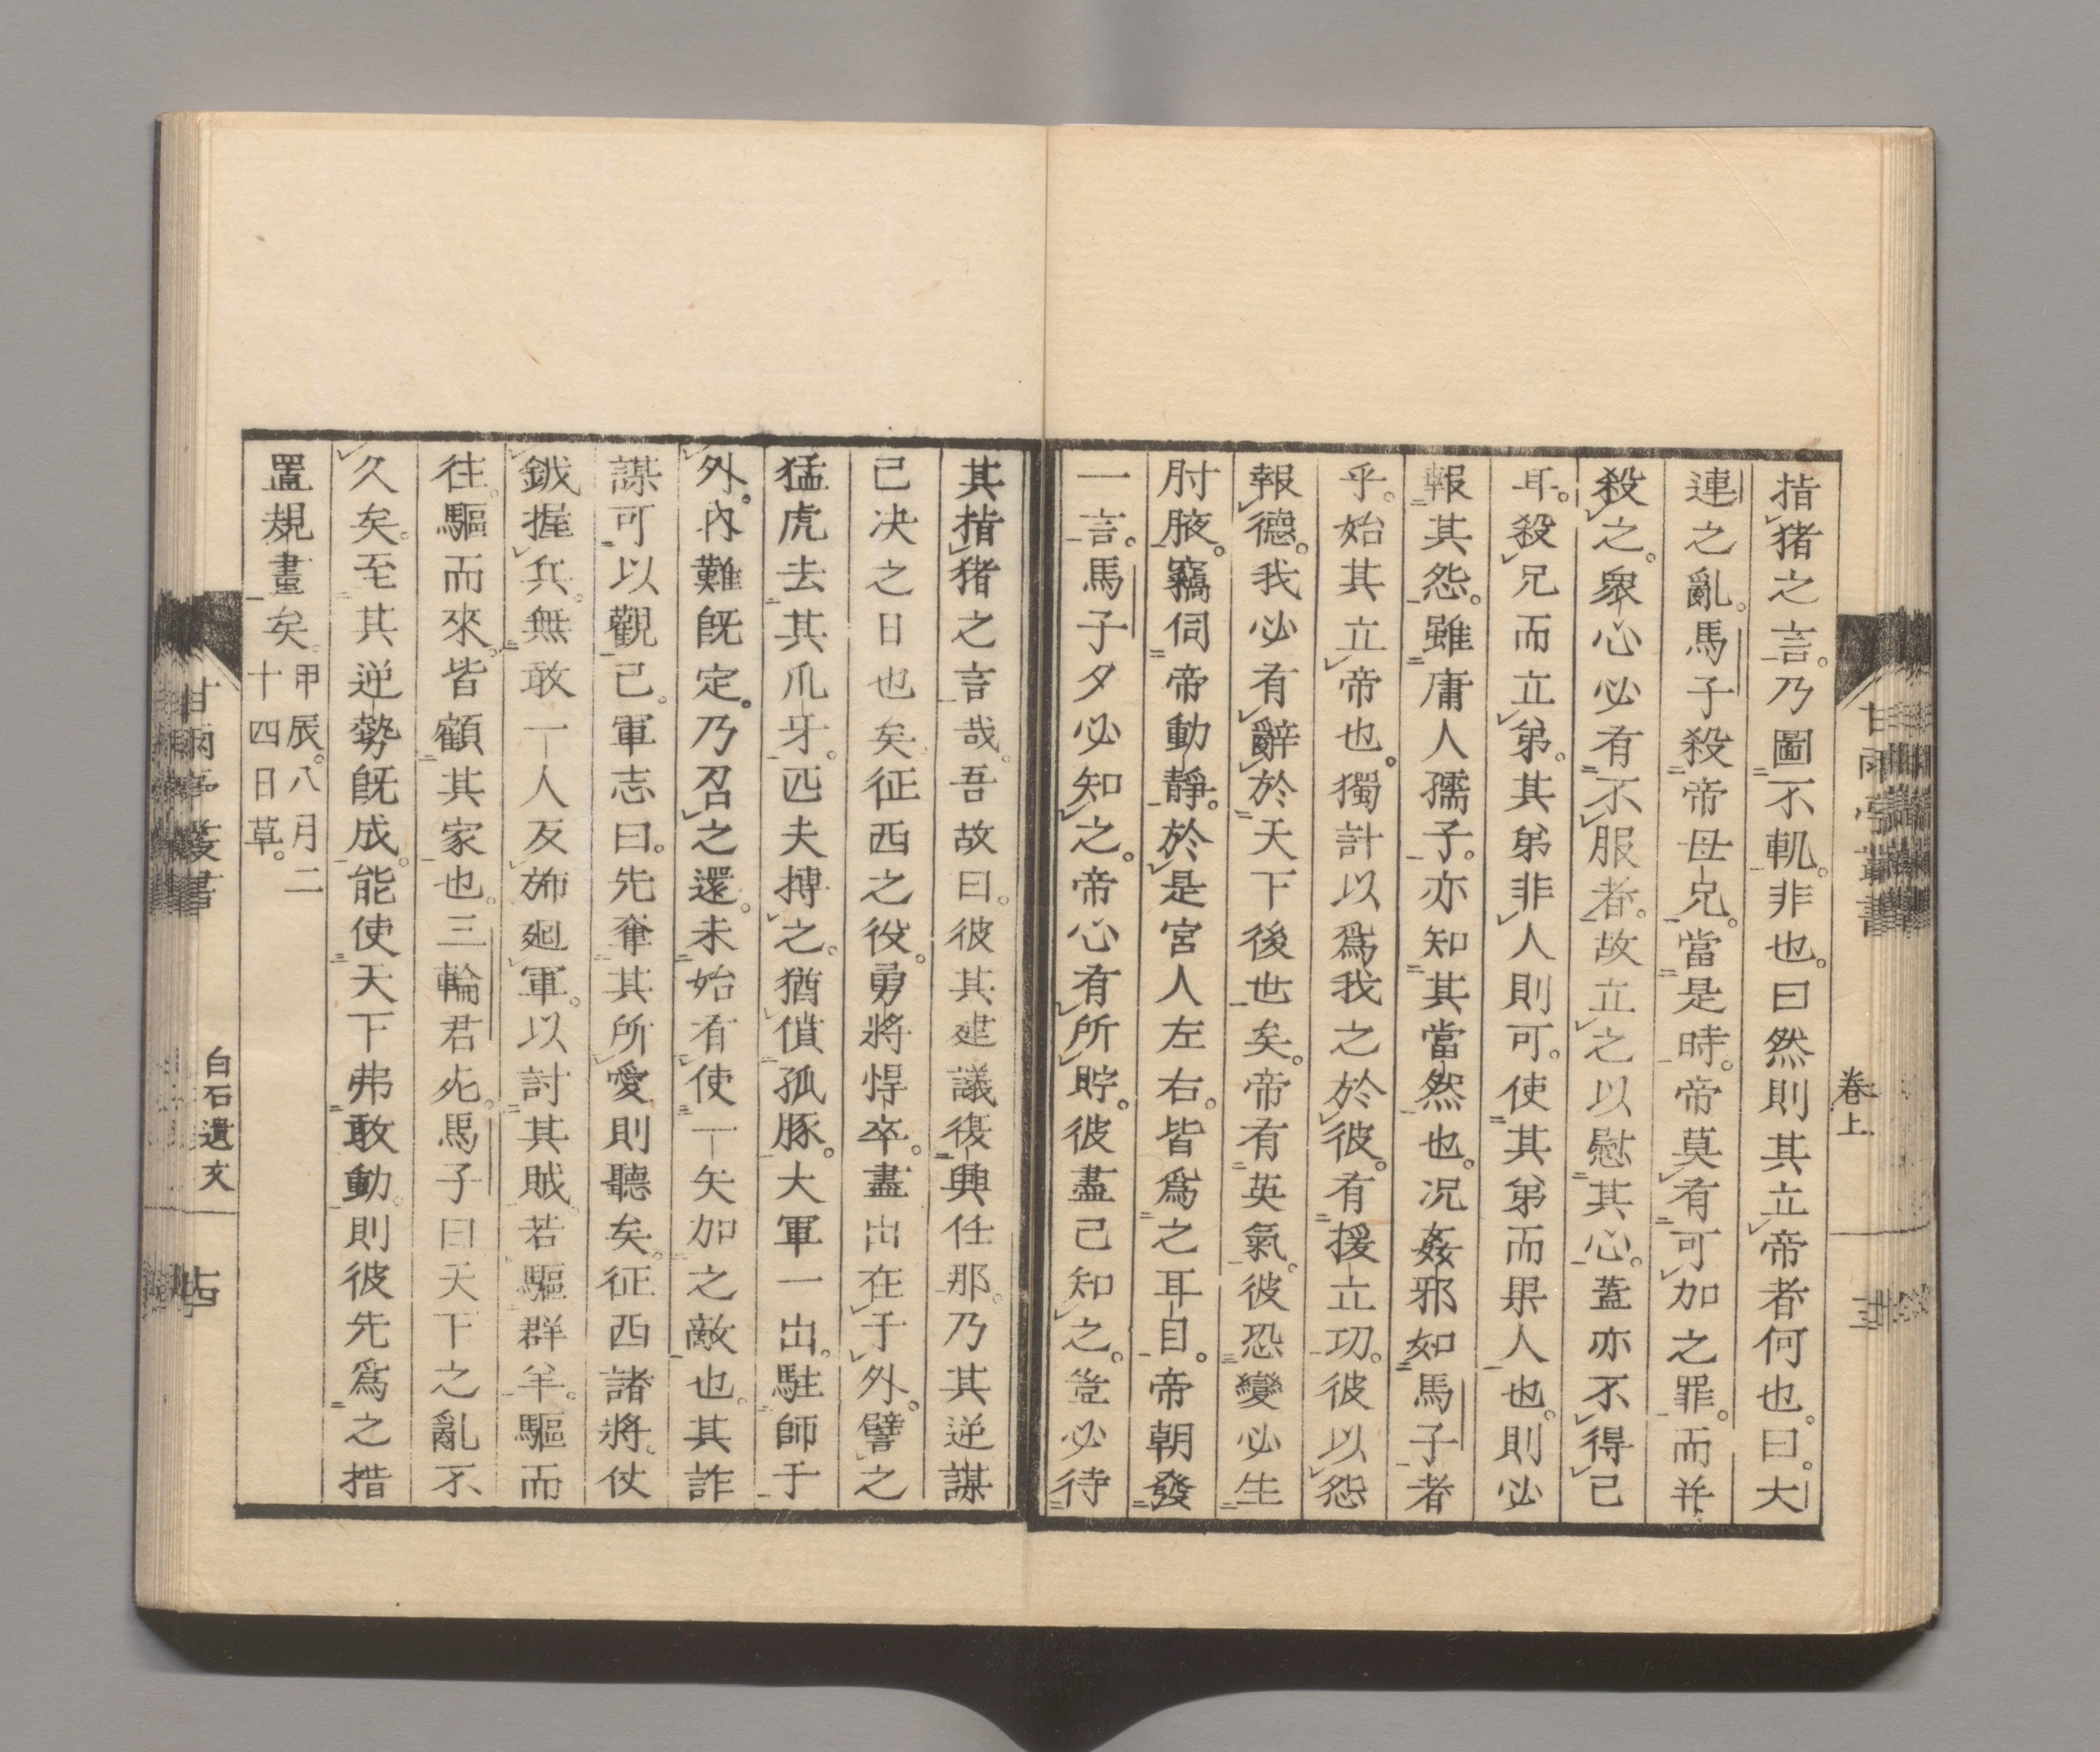 指猪之言。乃圖不軌。非也。曰然則其立帝者何也。曰。大
連之亂。馬子殺帝母兄。當是時。帝莫有可加之罪。而並
殺之。衆心必有不服者。故立之以慰其心。蓋亦不得已
耳。殺兄而立弟。其弟非人則可。使其弟而果人也。則必
報其怨。雖庸人孺子。亦知其當然也。况姦邪如馬子者
乎。始其立帝也。獨計以爲我之於彼。有援立功。彼以怨
報德。我必有辭於天下後世矣。帝有英氣。彼恐變必生
肘腋。竊伺帝動靜。於是宮人左右。皆爲之耳目。帝朝發
一言。馬子夕必知之。帝心有所貯。彼盡已知之。豈必待
其指猪之言哉。吾故曰。彼其建議復興任那。乃其逆謀
已决之日也矣。征西之役。勇將悍卒。盡出在于外。譬之
猛虎去其爪牙。匹夫搏之。猶僨孤豚。大軍一出。駐師于
外。內難既定。乃召之還。未始有使一矢加之敵也。其詐
謀可以觀已。軍志曰。先奪其所愛則聽矣。征西諸將。仗
鉞握兵。無敢一人反旆廻軍。以討其賊。若驅群羊。驅而
往。驅而來。皆顧其家也。三輪君死。馬子曰天下之亂不
久矣。至其逆勢既成。能使天下弗敢動。則彼先爲之措
置規畫矣。甲辰。八月二
十四日草。
甘雨亭叢書
卷上
甘雨亭叢書
白石遺文